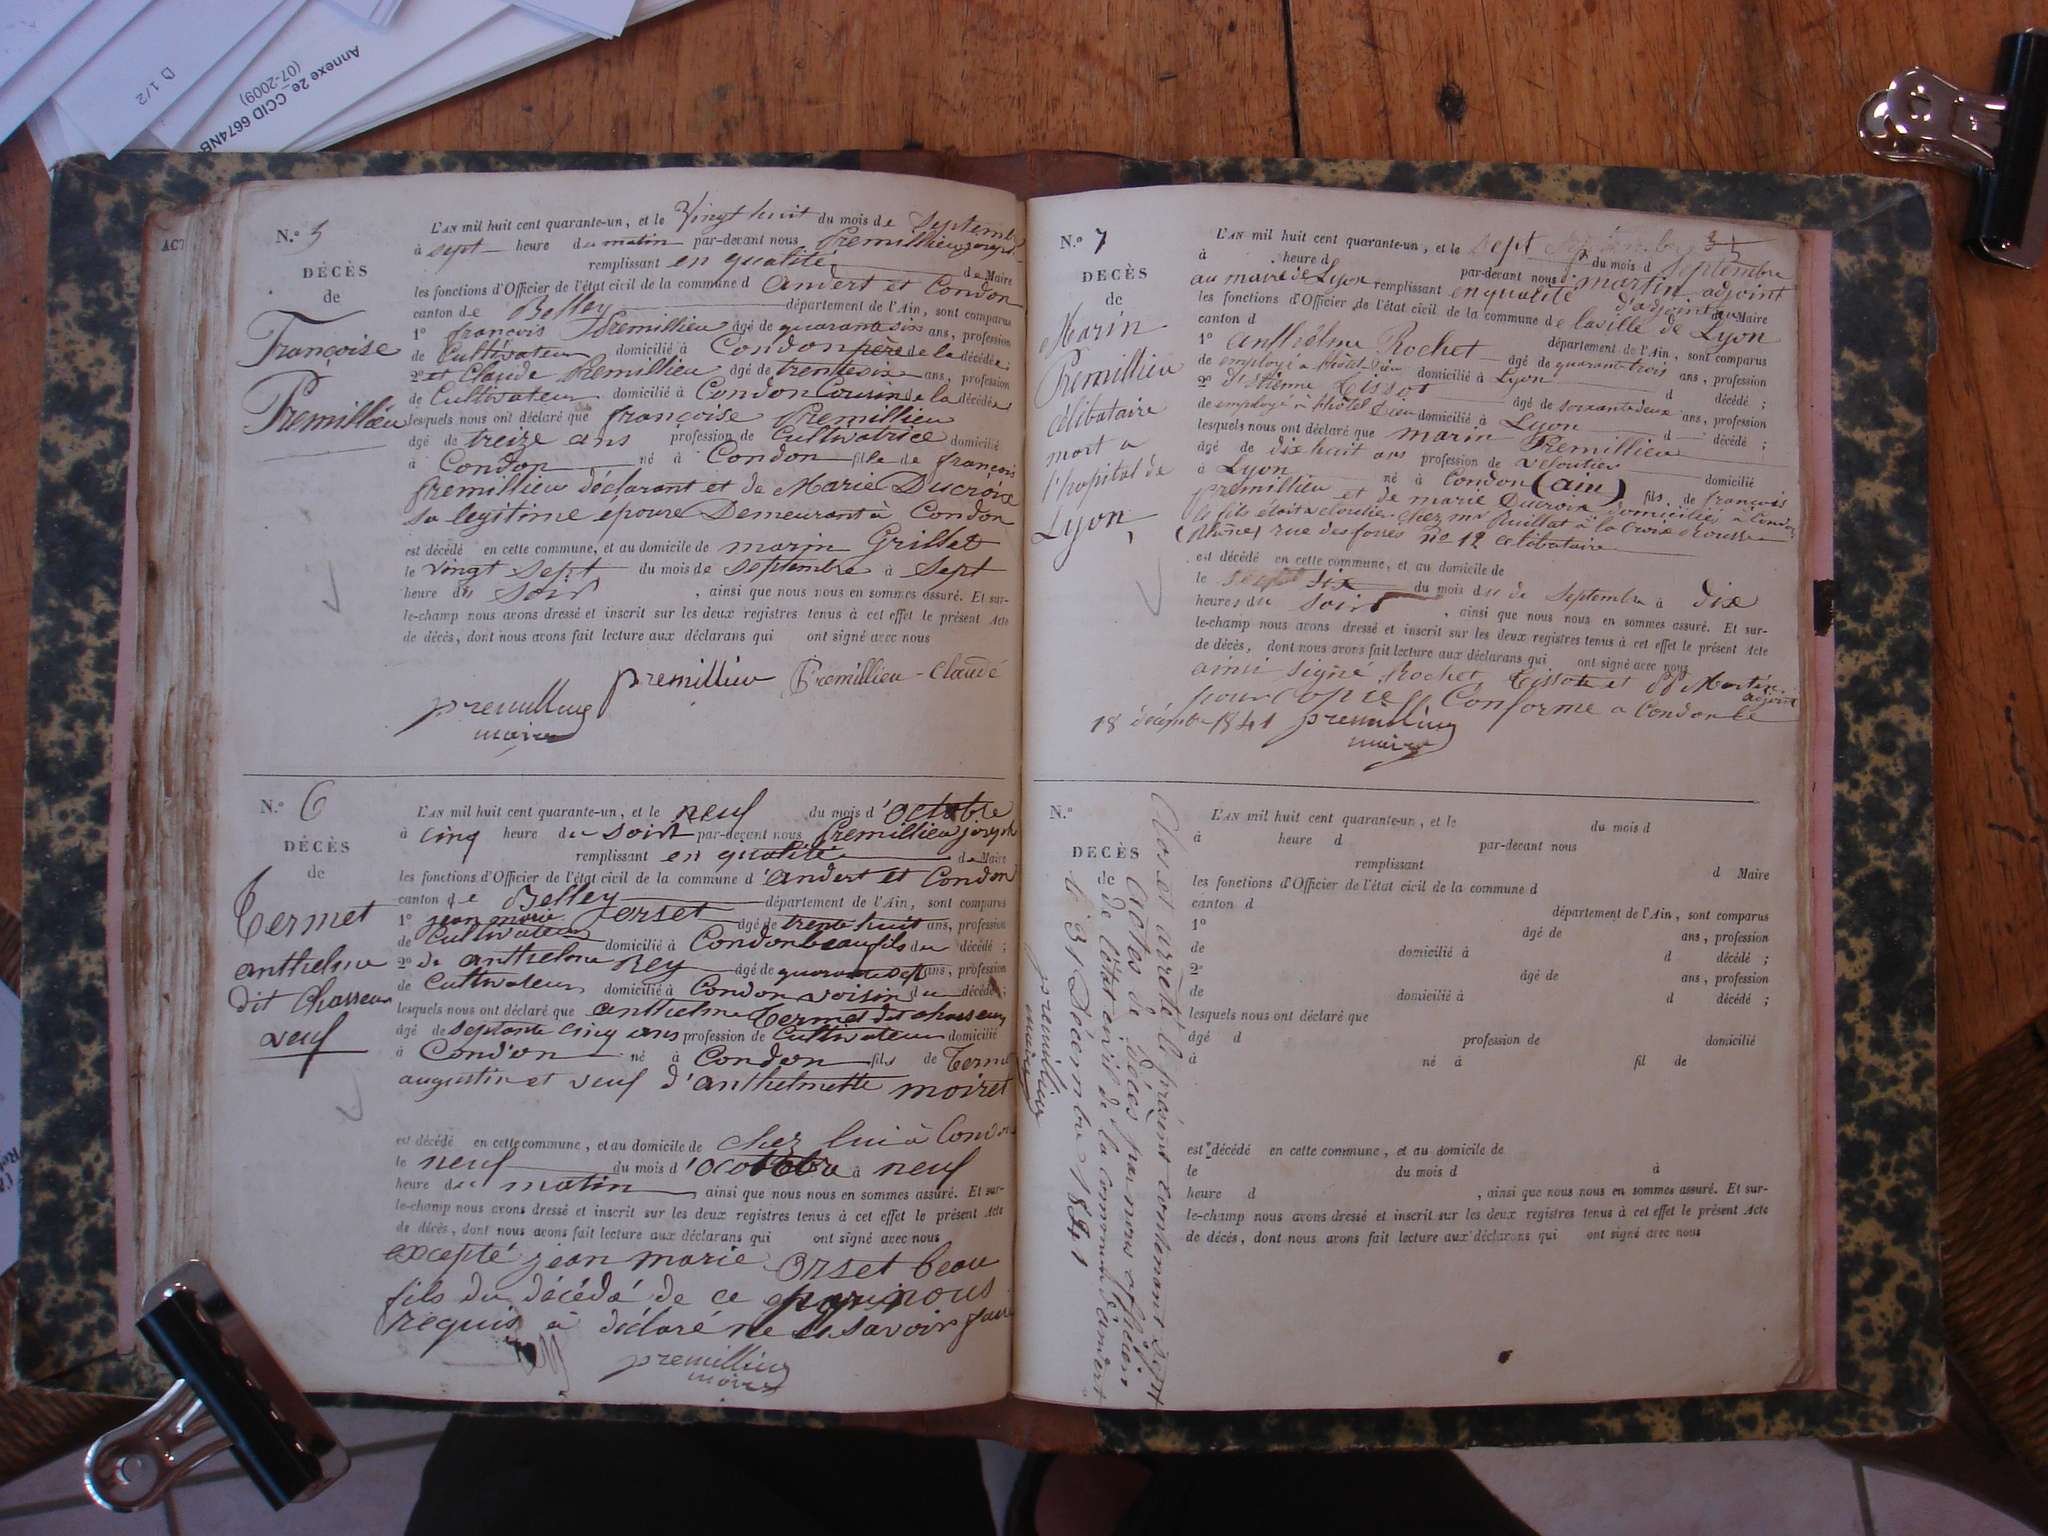 Annexe 2e_CCID 6674NB
(07-2009)
D 1/2
ACT
N.° 5
DÉCÈS
de
Françoise
Premillieu
L'AN mil huit cent quarante-un, et le Vingt huit du mois de Septembre
à sept heure du matin par-devant nous Premillieu joseph
remplissant en qualité de Maire
les fonctions d'Officier de l'état civil de la commune d andert et Condon
canton de Belley département de l'Ain, sont comparus
1° françois Premillieu âgé de quarante six ans, profession
de Cultivateur domicilié à Condon père de la décédée;
2° et Claude Premillieu âgé de trente six ans, profession
de Cultivateur domicilié à Condon Cousin de la décédée
lesquels nous ont déclaré que françoise Premillieu
âgé de treize ans profession de Cultivatrice domicilié
à Condon né à Condon fille de françois
premillieu déclarant et de Marie Ducroix
sa legitime epouse Demeurant à Condon
est décédé en cette commune, et au domicile de marin Grillet
le vingt sept du mois de septembre à sept
heure du soir, ainsi que nous nous en sommes assuré. Et sur-
le-champ nous avons dressé et inscrit sur les deux registres tenus à cet effet le présent Acte
de décès, dont nous avons fait lecture aux déclarans qui ont signé avec nous
premillieu Premillieu - Claude
premillieu
maire
N.° 6
DÉCÈS
de
Termet
anthelme
dit Chasseur
veuf
L'AN mil huit cent quarante-un, et le neuf du mois d'octobre
à cinq heure du soir par-devant nous Premillieu joseph
remplissant en qualité de Maire
les fonctions d'Officier de l'état civil de la commune d'andert et Condon
canton de Belley département de l'Ain, sont comparus
1° jean marie orset âgé de trente huit ans, profession
de Cultivateur domicilié à Condon beau fils du décédé;
2° de anthelme Rey âgé de quarante sept ans, profession
de Cultivateur domicilié à Condon voisin du décédé;
lesquels nous ont déclaré que anthelme termet dit chasseur
âgé de septante cinq ans profession de Cultivateur domicilié
à Condon né à Condon fils de Termet
augustin et veuf d'anthelmette moiret
est décédé en cette commune, et au domicile de chez lui à Condon
le neuf du mois d'octobre à neuf
heure du matin, ainsi que nous nous en sommes assuré. Et sur-
le-champ nous avons dressé et inscrit sur les deux registres tenus à cet effet le présent Acte
de décès, dont nous avons fait lecture aux déclarans qui ont signé avec nous
excepté jean marie Orset beau
fils du décédé de ce par nous
requis à déclaré ne le savoir faire
premillieu
maire
N.° 7
DÉCÈS
de
Marin
Premillieu
célibataire
mort a
l'hopital de
Lyon
L'AN mil huit cent quarante-un, et le sept du mois d septembre
à heure d par-devant nous martin adjoint
au maire de Lyon remplissant en qualité d'adjoint au Maire
les fonctions d'Officier de l'état civil de la commune de la ville de Lyon
canton d département de l'Ain, sont comparus
1° anthelme Rochet âgé de quarante trois ans, profession
de employé a l'hôtel Dieu domicilié à Lyon d décédé;
2° d'Etienne Tissot âgé de soixante deux ans, profession
de employé à l'hôtel Dieu domicilié à Lyon d décédé;
lesquels nous ont déclaré que marin Premillieu
âgé de dix huit ans profession de veloutier domicilié
à Lyon né à Condon (ain) fils de françois
premillieu et de marie Ducroix domiciliés à Condon
le fils était veloutier chez mr feuillat à la Croix Rousse
(Rhône) rue des fosses n° 12 célibataire
est décédé en cette commune, et au domicile de
le six du mois du de septembre à dix
heures du soir, ainsi que nous nous en sommes assuré. Et sur-
le-champ nous avons dressé et inscrit sur les deux registres tenus à cet effet le présent Acte
de décès, dont nous avons fait lecture aux déclarans qui ont signé avec nous
ainsi signé Rochet Tissot et Martin adjoint
pour copie Conforme a Condon le
18 décembre 1841 premillieu
maire
N.°
DÉCÈS
de
L'AN mil huit cent quarante-un, et le du mois d
à heure d par-devant nous
remplissant d Maire
les fonctions d'Officier de l'état civil de la commune d
canton d département de l'Ain, sont comparus
1° âgé de ans, profession
de domicilié à d décédé;
2° âgé de ans, profession
de domicilié à d décédé;
lesquels nous ont déclaré que
âgé d profession de domicilié
à né à fil de
est décédé en cette commune, et au domicile de
le du mois d à
heure d, ainsi que nous nous en sommes assuré. Et sur-
le-champ nous avons dressé et inscrit sur les deux registres tenus à cet effet le présent Acte
de décès, dont nous avons fait lecture aux déclarans qui ont signé avec nous
Clos et arrêté le présent contenant sept
Actes de décès par nous officier
de l'état civil de la commune d'andert
le 31 Décembre 1841
premillieu
maire